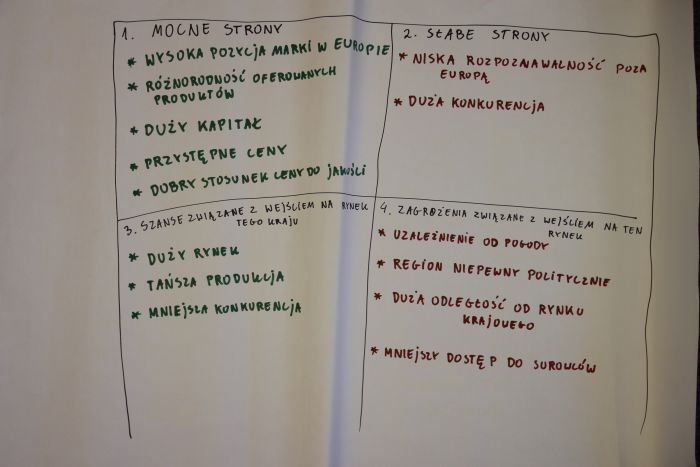 1. MOCNE STRONY
* WYSOKA POZYCJA MARKI W EUROPIE
* RÓŻNORODNOŚĆ OFEROWANYCH
PRODUKTÓW
* DUŻY KAPITAŁ
* PRZYSTĘPNE CENY
* DOBRY STOSUNEK CENY DO JAKOŚCI
2. SŁABE STRONY
* NISKA ROZPOZNAWALNOŚĆ POZA
EUROPĄ
* DUŻA KONKURENCJA
3. SZANSE ZWIĄZANE Z WEJŚCIEM NA RYNEK
TEGO KRAJU
* DUŻY RYNEK
* TAŃSZA PRODUKCJA
* MNIEJSZA KONKURENCJA
4. ZAGROŻENIA ZWIĄZANE Z WEJŚCIEM NA TEN
RYNEK
* UZALEŻNIENIE OD POGODY
* REGION NIEPEWNY POLITYCZNIE
* DUŻA ODLEGŁOŚĆ OD RYNKU
KRAJOWEGO
* MNIEJSZY DOSTĘP DO SUROWCÓW